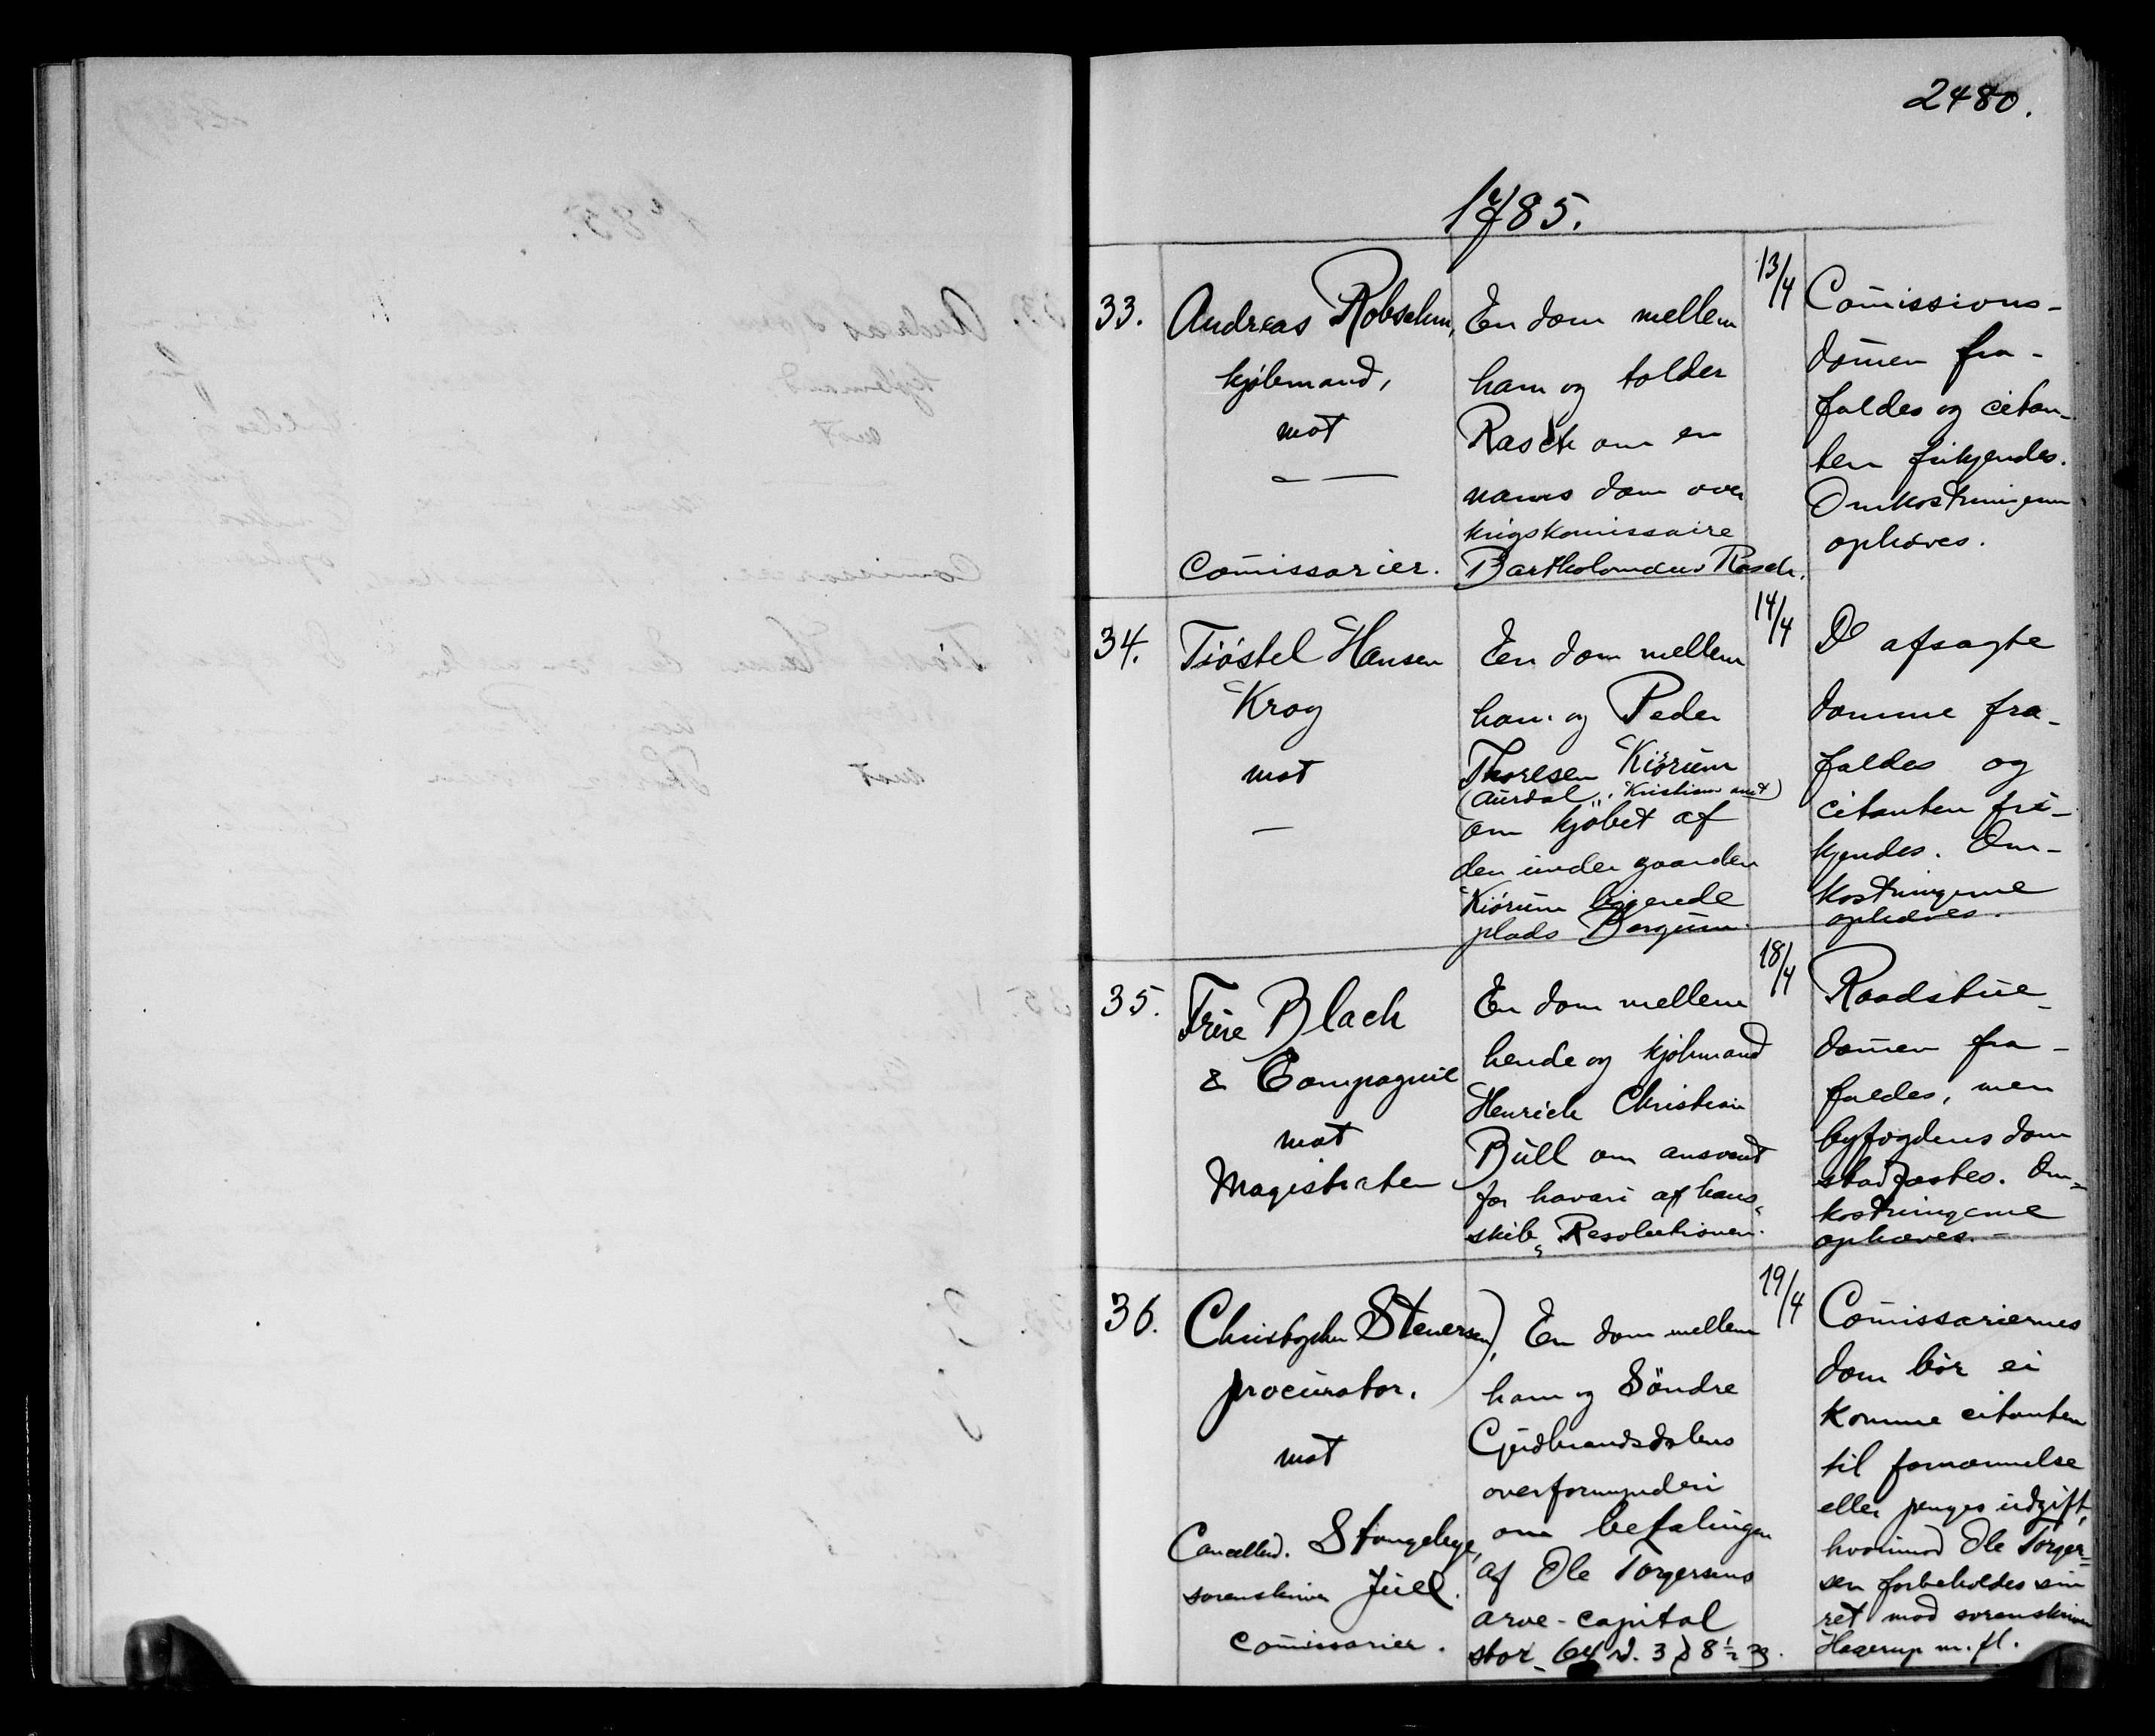 2480.
1785.
33.
Andreas Robsahm,
kjøbmand,
mot
— —
Com̄issarier.
En dom mellem
ham og tolder
Rasch om en
navns dom over
krigskom̄issaire
Bartholomæus Rasch.
13/4
Com̄issions-
dom̄en fra-
faldes og citan-
ten frikjendes.
Omkostningerne
ophæves.
34.
Tiöstel Hansen
Krog
mot
—
En dom mellem
ham og Peder
Thoresen Kiörum
(Aurdal, Kristians amt)
om kjøbet af
den under gaarden
Kiörum liggende
plads Bergum.
14/4
D afsagte
domme fra-
faldes og
citanten fri-
kjendes. Om-
kostningerne
ophæves.
35.
Frue Blach
& Compagnie
mot
Magistraten
En dom mellem
hende og kjøbmand
Henrich Christian
Büll om ansvaret
for havari af hans
skib „Resolutionen“.
18/4
Raadstue-
dom̄en fra-
faldes, men
byfogdens dom
stadfæstes. Om-
kostningerne
ophæves.-
36.
Christopher Stenersen,
procurator.
mot
Cancellird. Stongeberge,
sorenskriver Juel.
com̄issarier.
En dom mellem
ham og Söndre
Gudbrandsdalens
overformynderi
om befalingen
af Ole Torgersens
arve-capital
stor 64 rd. 3 ƺ 8½ ƺ.
19/4
Com̄issariernes
dom bör ei
komme citanten
til fornærmelse
eller penges udgift,
hvorimod Ole Torger-
sen forbeholdes sin
ret mod sorenskriver
Hagerup m. fl.